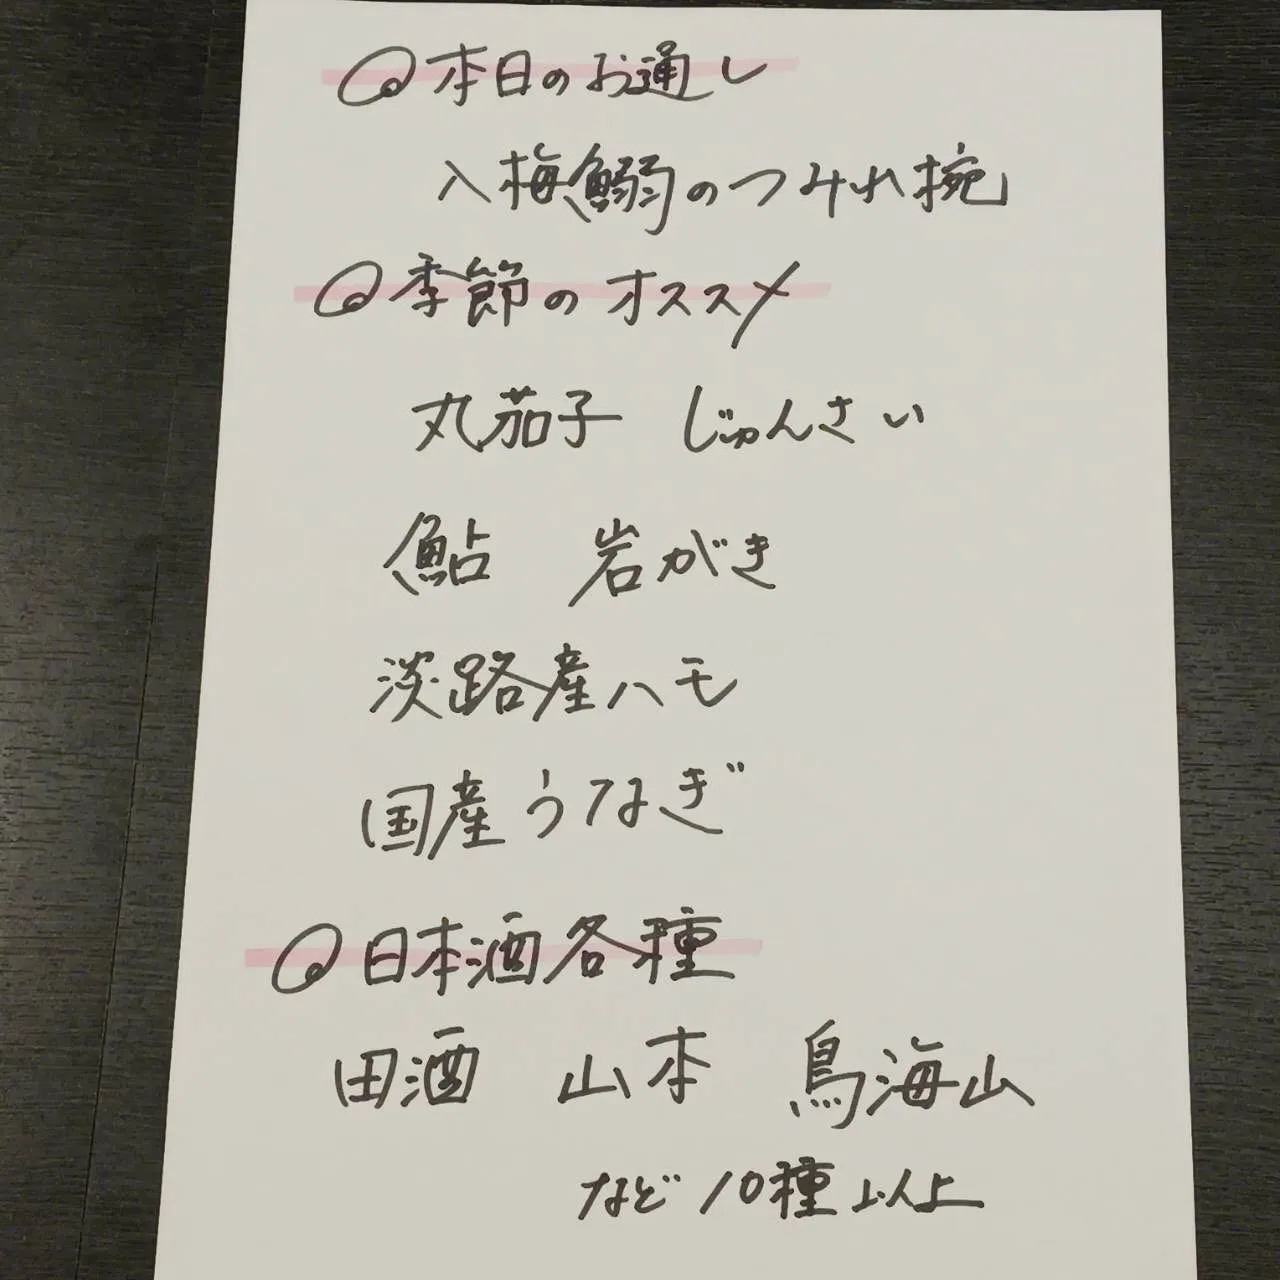 ◎本日のお通し
入梅鰯のつみれ椀
◎季節のオススメ
丸茄子 じゅんさい
鮎 岩がき
淡路産ハモ
国産うなぎ
◎日本酒各種
田酒 山本 鳥海山
など10種以上